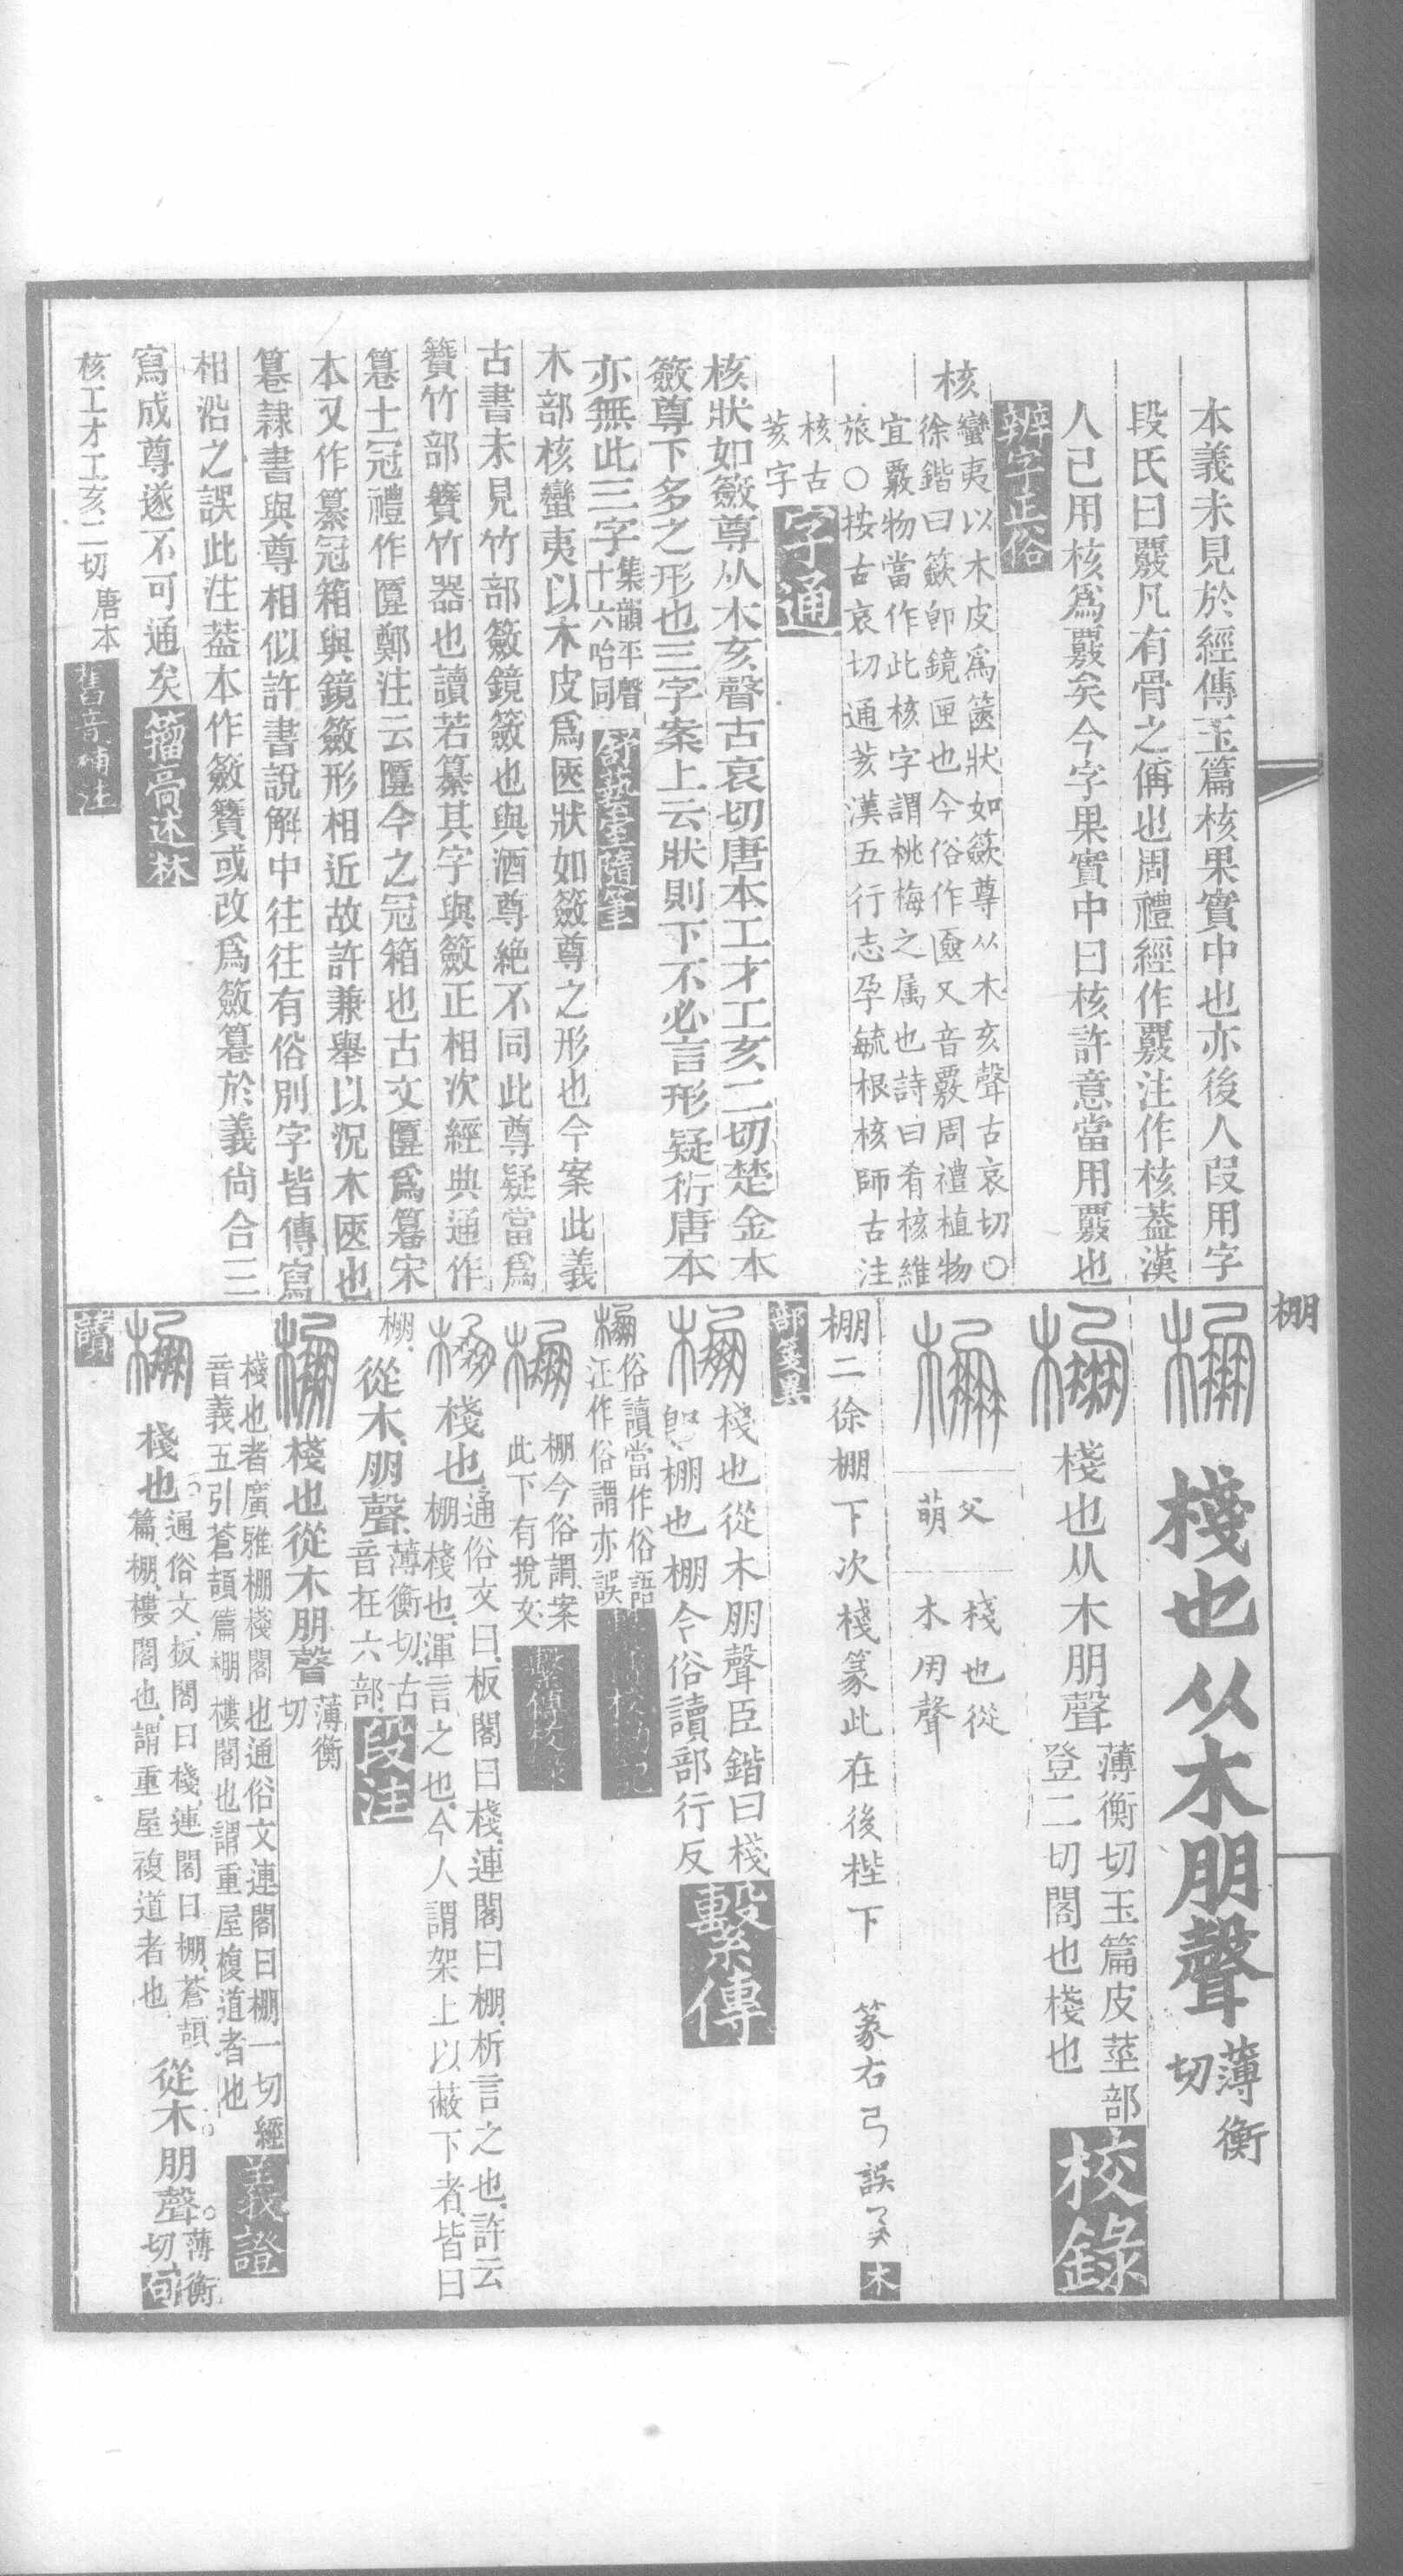 本義未見於經傳玉篇核果實中也亦後人叚用字
段氏曰覈凡有骨之偁也周禮經作覈注作核葢漢
人已用核爲覈矣今字果實中曰核許意當用覈也
辨字正俗
核
蠻夷以木皮爲篋狀如籢尊从木亥聲古哀切○
徐鍇曰籢卽鏡匣也今俗作匳又音覈周禮植物
宜覈物當作此核字謂桃梅之属也詩曰肴核維
旅○按古哀切通荄漢五行志孕毓根核師古注
核古
荄字
字通
核狀如籢尊从木亥聲古哀切唐本工才工亥二切楚金本
籢尊下多之形也三字案上云狀則下不必言形疑衍唐本
亦無此三字
集韻平聲
十六咍同
舒藝室隨筆
木部核蠻夷以木皮爲匧狀如籢尊之形也今案此義
古書未見竹部籢鏡籢也與酒尊絶不同此尊疑當爲
籫竹部籫竹器也讀若纂其字與籢正相次經典通作
篹士冠禮作匴鄭注云匴今之冠箱也古文匴爲篹宋
本又作纂冠箱與鏡籢形相近故許兼舉以況木匧也
篹隷書與尊相似許書說解中往往有俗別字皆傳寫
相沿之誤此注葢本作籢籫或改爲籢篹於義尙合二
寫成尊遂不可通矣
籀膏述林
核工才工亥二切
唐本
舊音補注
棚
棚
棧也从木朋聲
薄衡
切
棚
棧也从木朋聲
薄衡切玉篇皮莖部
登二切閣也棧也
校錄
棚
父
萌
棧也從
木用聲
棚二徐棚下次棧篆此在後梐下
篆右弓誤
木
部箋異
棚
棧也從木朋聲臣鍇曰棧
卽棚也棚今俗讀部行反
繫傳
棚
俗讀當作俗語
汪作俗謂亦誤
棚
棚今俗謂案
此下有挩文
繫傳校录
棚
棧也
通俗文曰板閣曰棧連閣曰棚析言之也許云
棚棧也渾言之也今人謂架上以蔽下者皆曰
棚
從木朋聲
薄衡切古
音在六部
段注
棚
棧也從木朋聲
薄衡
切
棧也者廣雅棚棧閣也通俗文連閣曰棚一切經
音義五引蒼頡篇棚樓閣也謂重屋複道者也
義證
棚
棧也
通俗文板閣曰棧連閣曰棚蒼頡
篇棚樓閣也謂重屋複道者也
從木朋聲
薄衡
切
句
讀